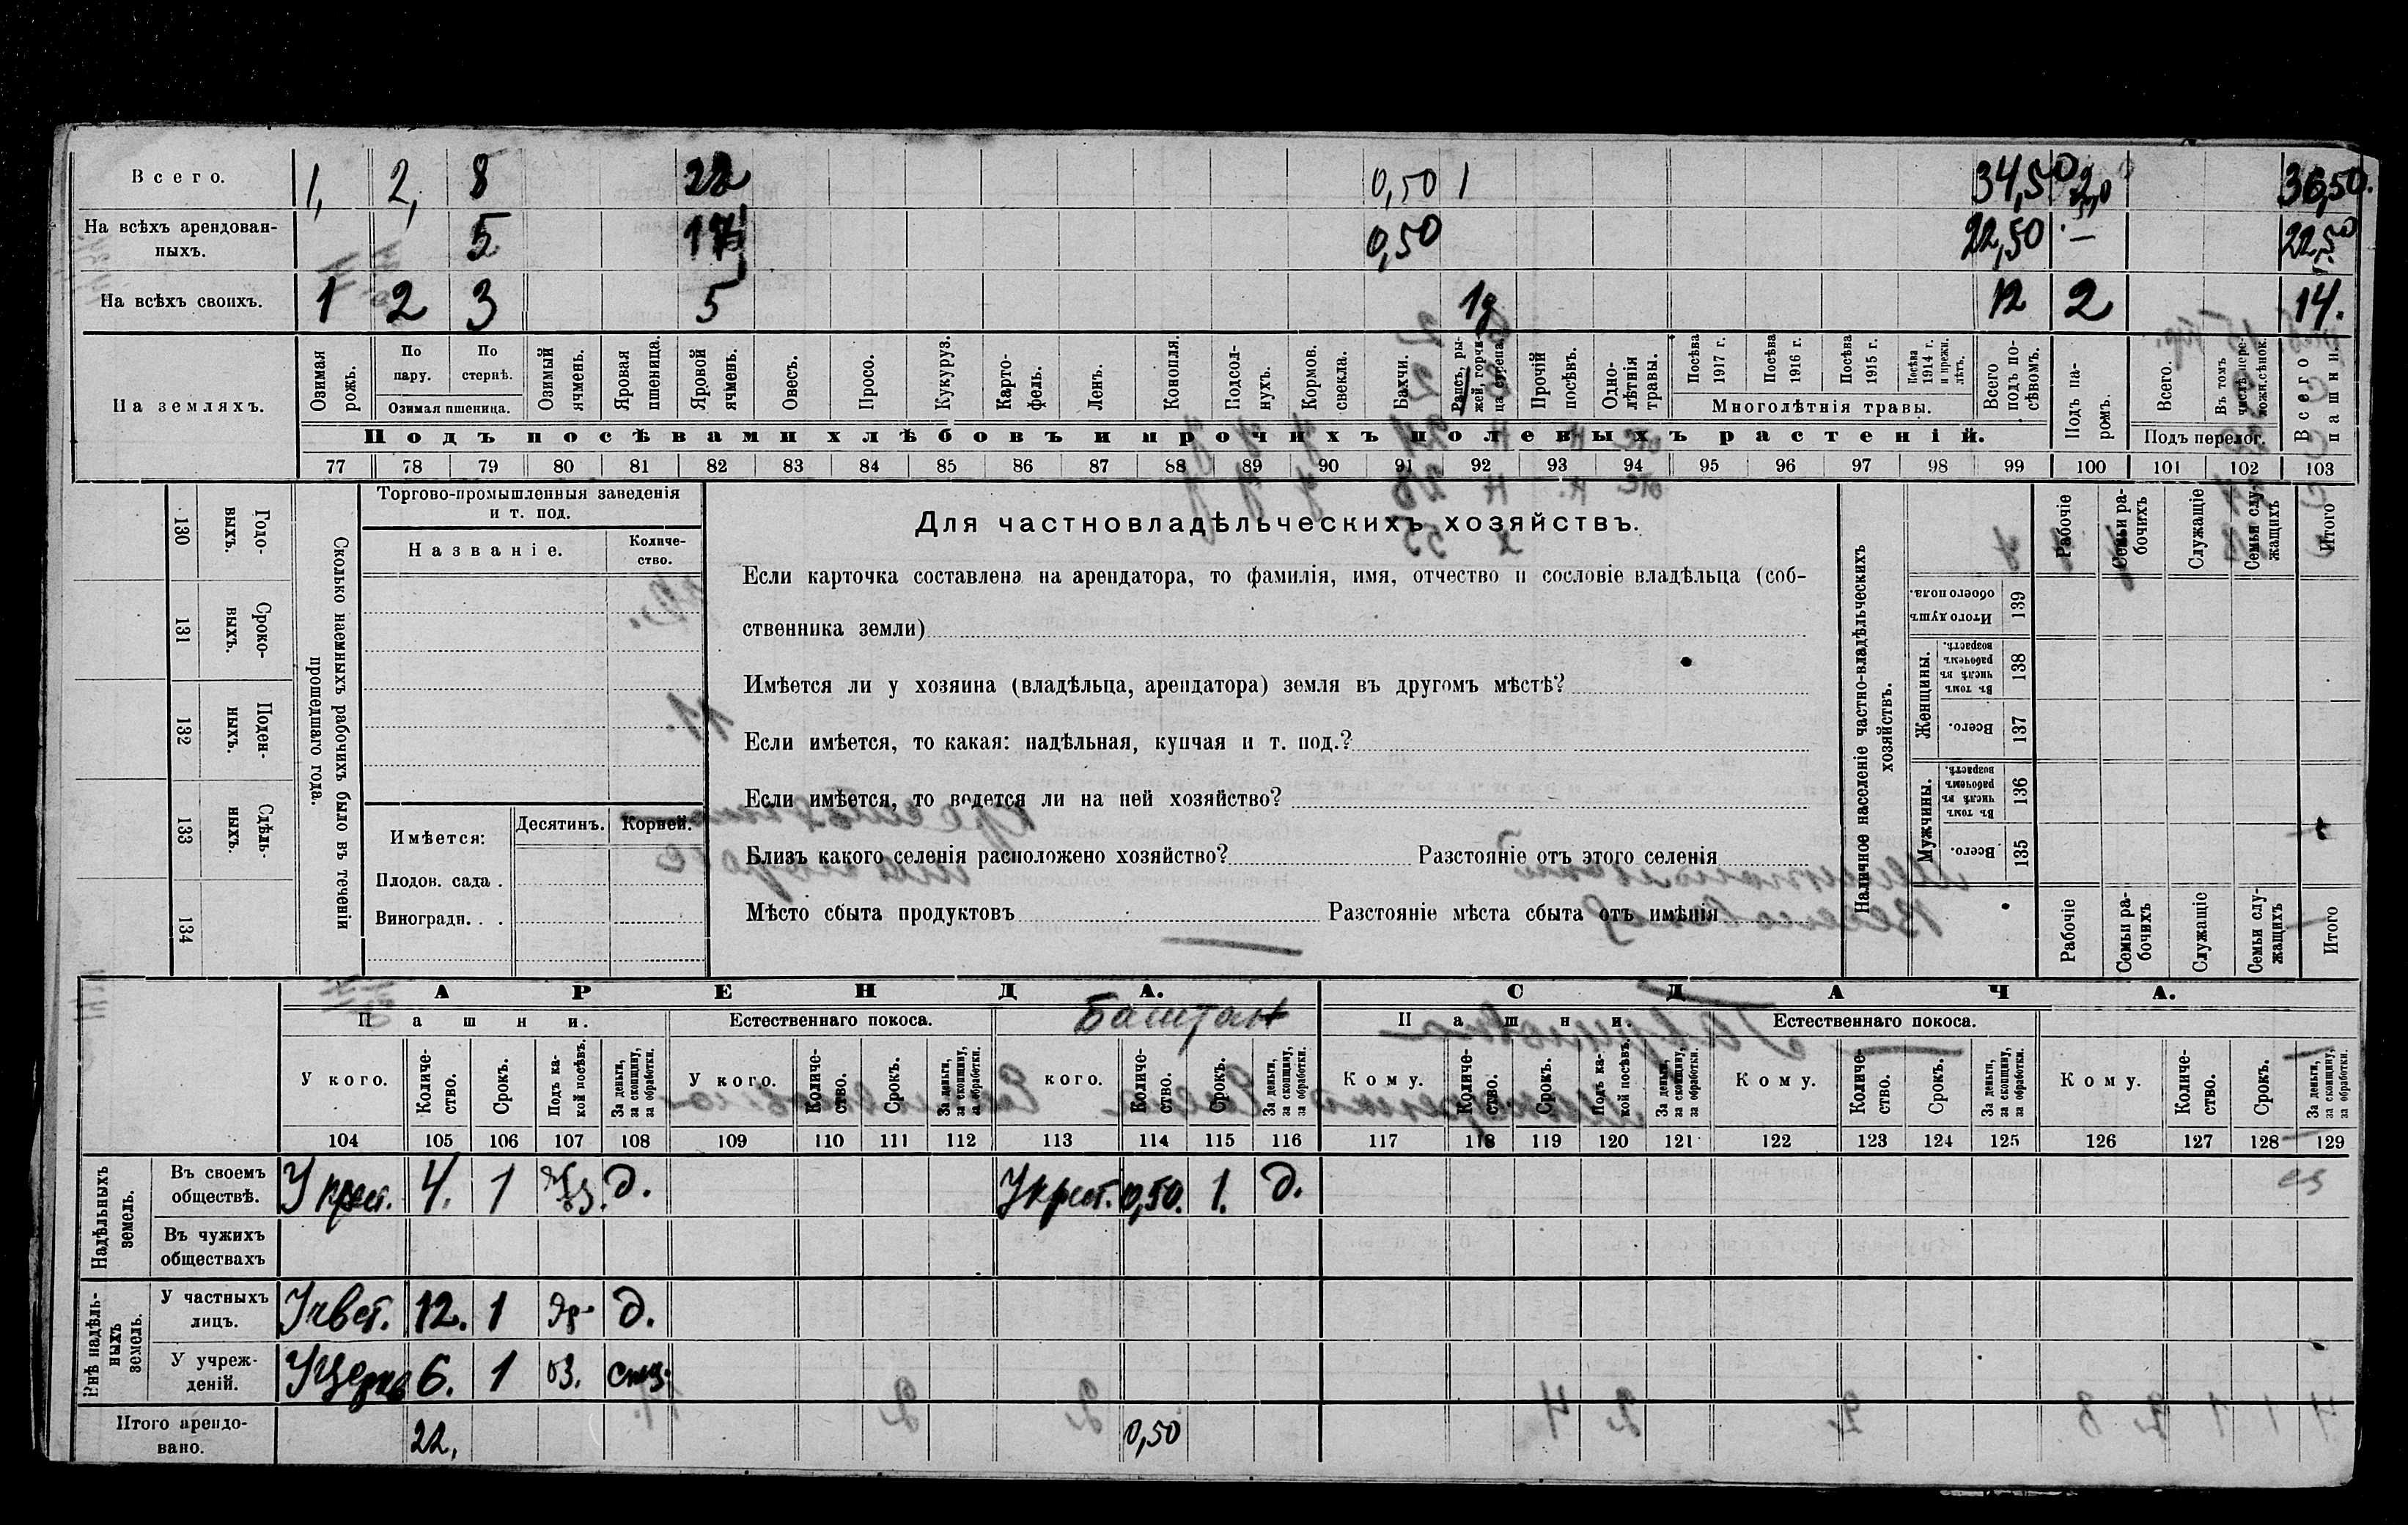 Всего. 1, 2, 8 22 0,50 1 34,50 2,0 36,50.
На всѣхъ арендован-
ныхъ. 5 17 0,50 22,50 — 22,50
На всѣхъ своихъ. 1 2 3 5 1 12 2 14.
На земляхъ.
Озимая рожь.
По пару.
По стернѣ.
Озимая пшеница.
Озимый ячмень.
Яровая пшеница.
Яровой ячмень.
Овесъ.
Просо.
Кукуруз.
Карто-
фель.
Ленъ.
Конопля.
Подсол-
нухъ.
Кормов. свекла.
Бахчи.
Рапсъ, ры-
жей, горчи-
ца
Прочій посѣвъ.
Одно-
лѣтнія травы.
Посѣва 1917 г.
Посѣва 1916 г.
Посѣва 1915 г.
Посѣва 1914 г. и прежн. лѣтъ.
Многолѣтнія травы.
Всего подъ по-
сѣвомъ.
Подъ па-
ромъ.
Всего.
Въ томъ числѣ пере-
ложн. сѣнок.
Подъ перелог.
Всего пашни.
Подъ посѣвами хлѣбовъ и прочихъ полевыхъ растеній.
77 78 79 80 81 82 83 84 85 86 87 88 89 90 91 92 93 94 95 96 97 98 99 100 101 102 103
130 Годо-
выхъ.
131 Сроко-
выхъ.
132 Поден-
ныхъ.
133 Сдѣль-
ныхъ.
134
Сколько наемныхъ рабочихъ было въ теченіи
прошедшаго года.
Торгово-промышленныя заведенія
и т. под.
Названіе.
Количе-
ство.
Имѣется: Десятинъ. Корней.
Плодов. сада .
Виноградн. . .
Для частновладѣльческихъ хозяйствъ.
Если карточка составлена на арендатора, то фамилія, имя, отчество и сословіе владѣльца (соб-
ственника земли)
Имѣется ли у хозяина (владѣльца, арендатора) земля въ другомъ мѣстѣ?
Если имѣется, то какая: надѣльная, купчая и т. под.?
Если имѣется, то ведется ли на ней хозяйство?
Близъ какого селенія расположено хозяйство? Разстояніе отъ этого селенія
Мѣсто сбыта продуктовъ Разстояніе мѣста сбыта отъ имѣнія
Наличное населеніе частно-владѣльческихъ
хозяйствъ.
Рабочіе
Семьи ра-
бочихъ
Служащіе
Семьи слу-
жащихъ
Итого
Итого душъ обоего пола. 139
Женщины.
Въ томъ числѣ въ рабочемъ возрастѣ. 138
Всего. 137
Мужчины.
Въ томъ числѣ въ рабочемъ возрастѣ. 136
Всего. 135
Рабочіе
Семьи ра-
бочихъ
Служащіе
Семьи слу-
жащихъ
Итого
АРЕНДА. СДАЧА.
Пашни. Естественнаго покоса. Баштан Пашни. Естественнаго покоса.
У кого.
Количе-
ство.
Срокъ.
Подъ ка-
кой посѣвъ.
За деньги,
за скопщину,
за обработки.
У кого.
Количе-
ство.
Срокъ.
За деньги,
за скопщину,
за обработки.
кого.
Количе-
ство.
Срокъ.
За деньги,
за скопщину,
за обработки.
Кому.
Количе-
ство.
Срокъ.
Подъ ка-
кой посѣвъ.
За деньги,
за скопщину,
за обработки.
Кому.
Количе-
ство.
Срокъ.
За деньги,
за скопщину,
за обработки.
Кому.
Количе-
ство.
Срокъ.
За деньги,
за скопщину,
за обработки.
104 105 106 107 108 109 110 111 112 113 114 115 116 117 118 119 120 121 122 123 124 125 126 127 128 129
Надѣльныхъ
земель.
Въ своемъ
обществѣ. У крест. 4. 1 д. У крест. 0,50. 1. д.
Въ чужихъ
обществахъ
Внѣ надѣль-
ныхъ
земель.
У частныхъ
лицъ. 12. 1 яр д.
У учреж-
деній. У Церкв 6. 1 оз.
Итого арендо-
вано. 22, 0,50